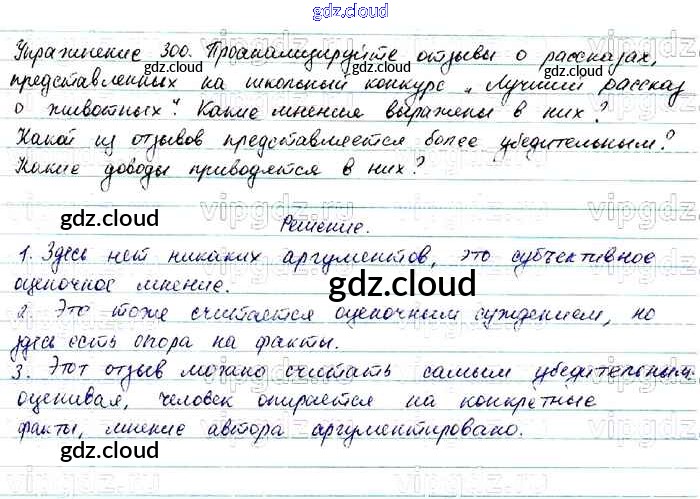 gdz.cloud
Упражнение 300. Проанализируйте отзывы о рассказах,
gdz.cloud gdz.cloud
представленных на школьный конкурс „Лучший рассказ
о животных“. Какие мнения выражены в них?
Какой из отзывов представляется более убедительным?
Какие доводы приводятся в них?
gdz.cloud vipgdz.ru
Решение.
1. Здесь нет никаких аргументов, это субъективное
оценочное мнение.
gdz.cloud
2. Это тоже считается оценочным суждением, но
здесь есть опора на факты.
3. Этот отзыв можно считать самым убедительным.
оценивая, человек опирается на конкретные
факты, мнение автора аргументировано.
gdz.cloud gdz.cloud
gdz.cloud